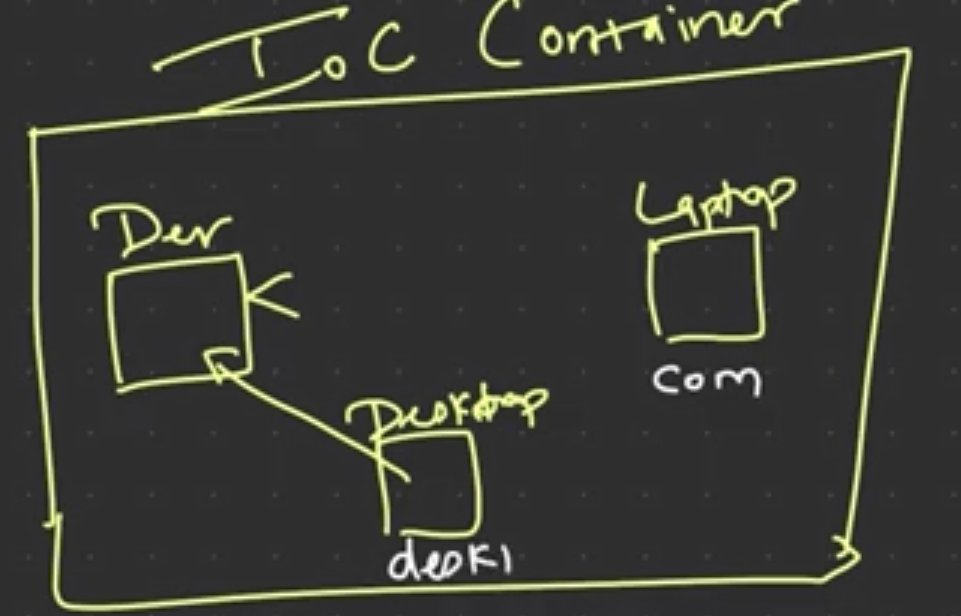 IoC Container
Dev
Laptop
com
Desktop
desk1